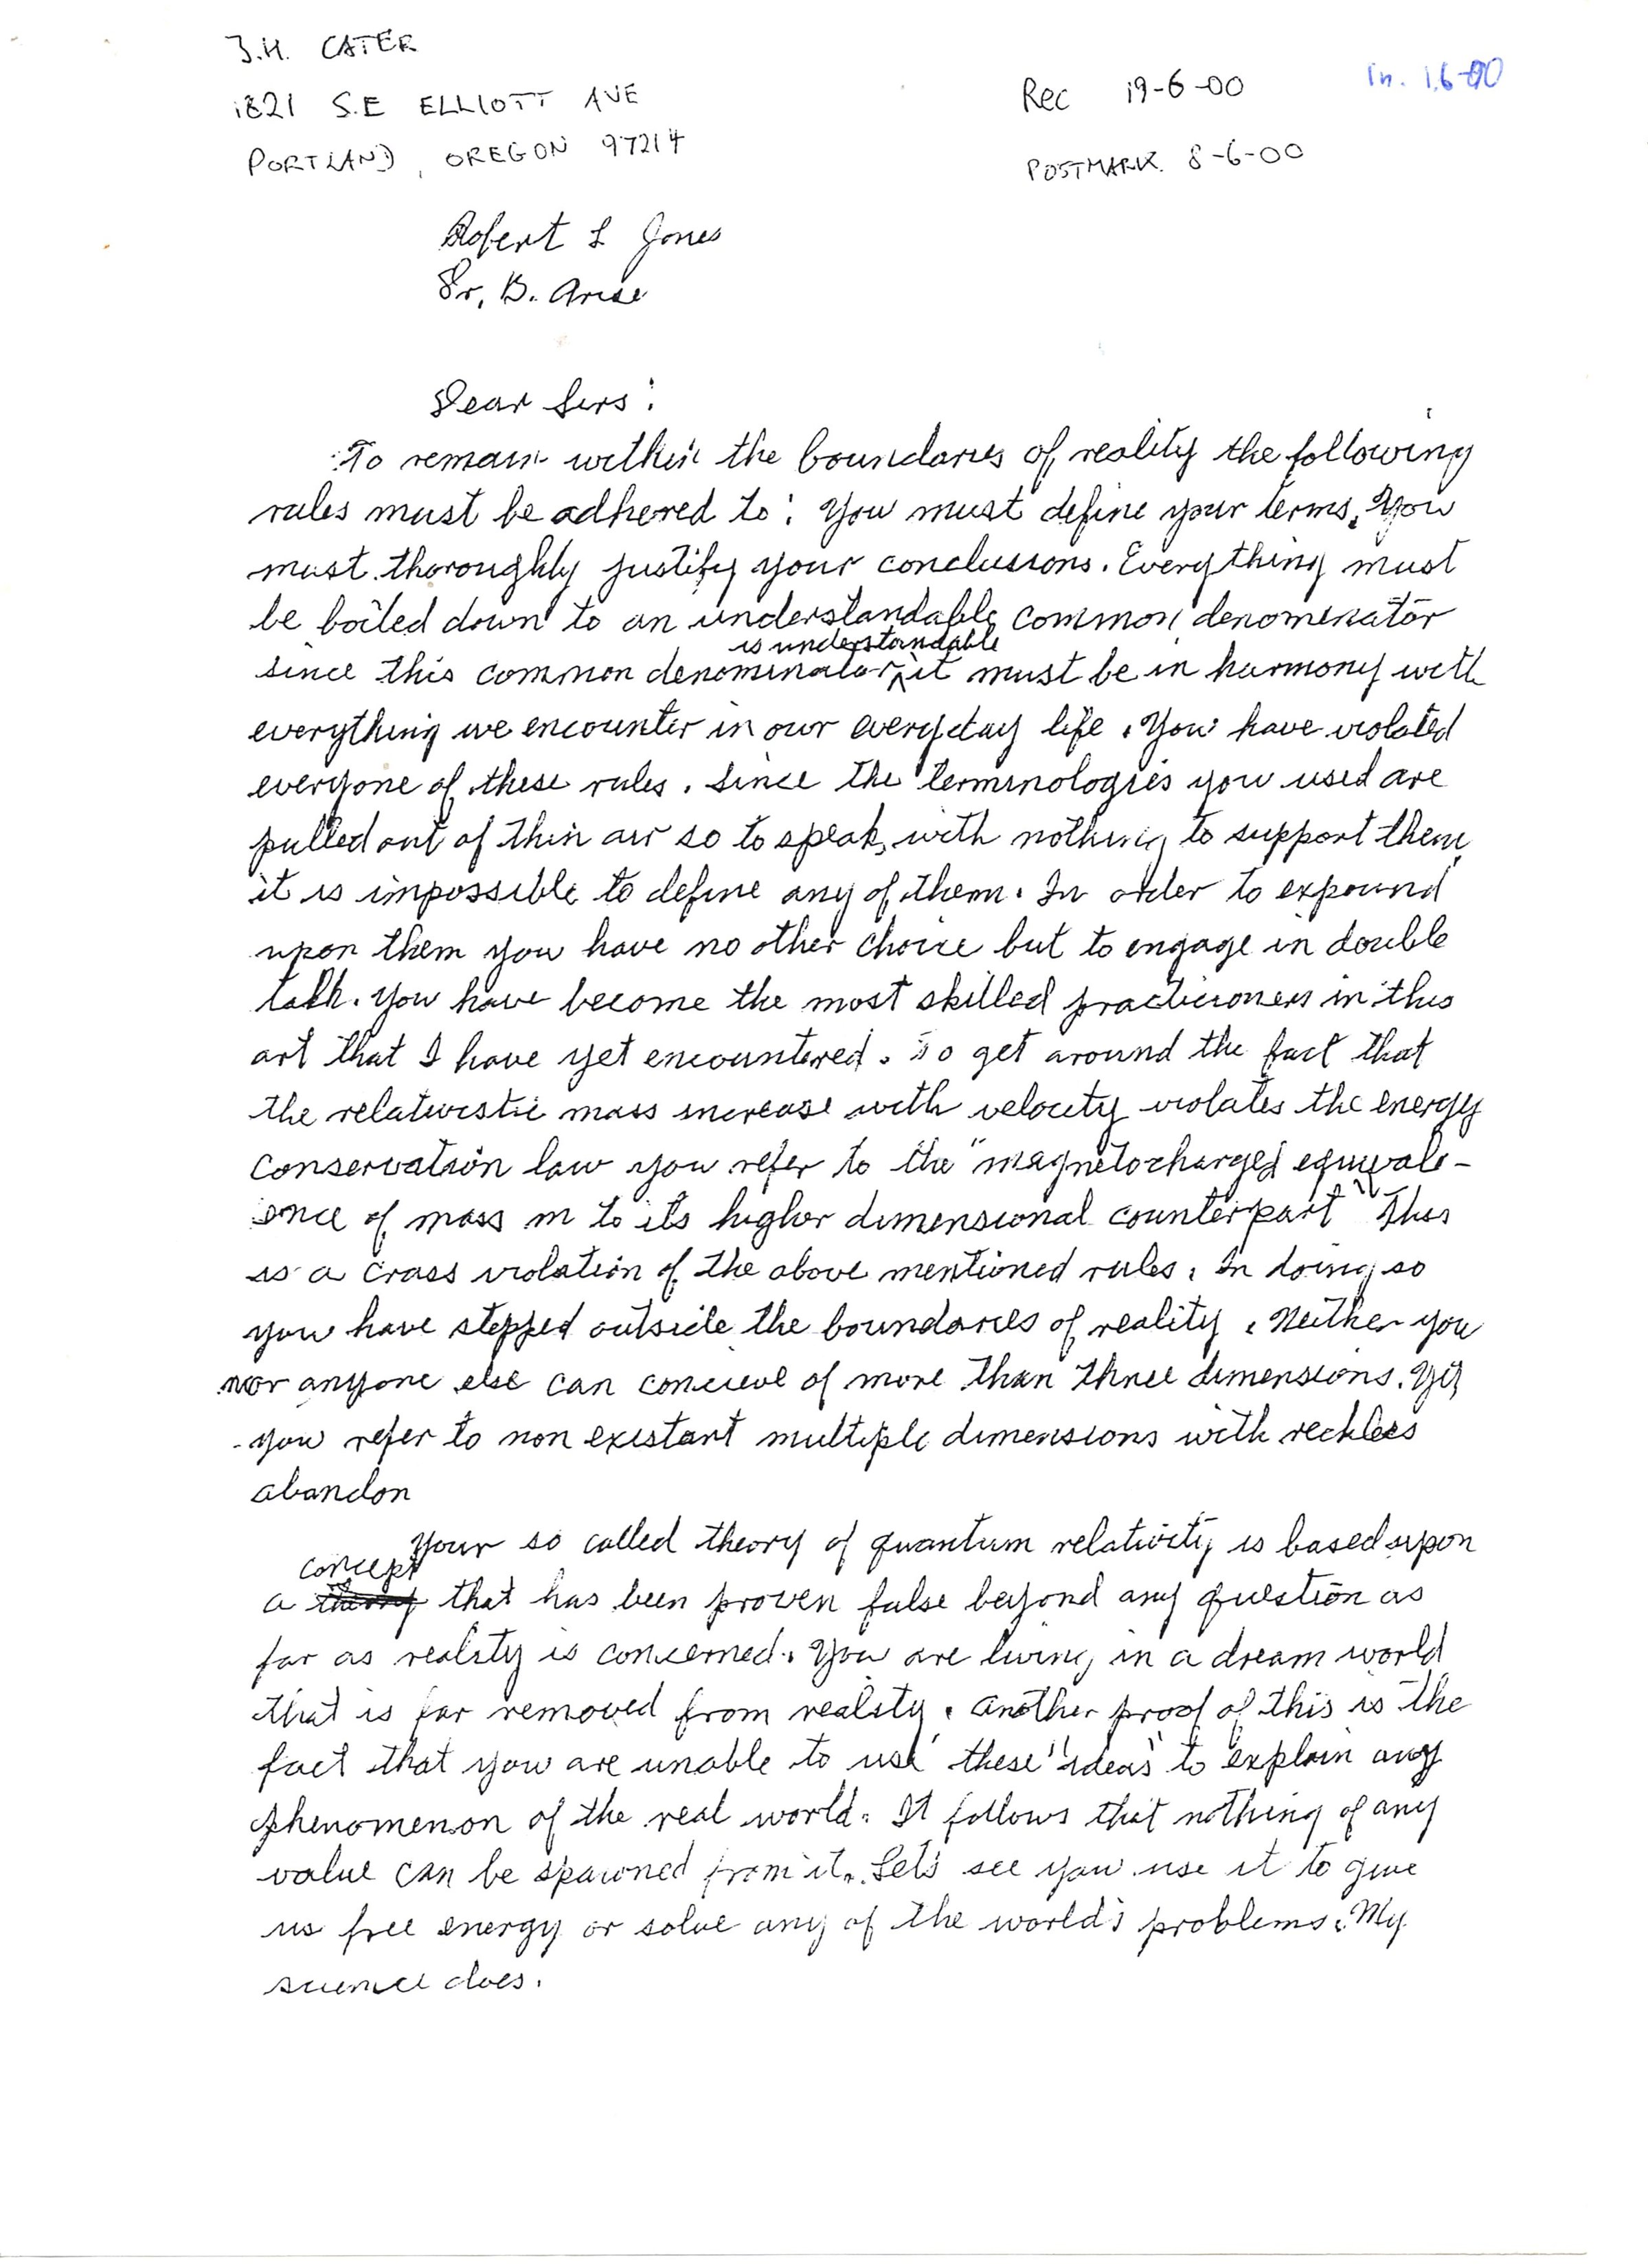 J.H. CATER
1821 S.E ELLIOTT AVE
PORTLAND, OREGON 97214
Rec 19-6-00
In. 16-00
POSTMARK. 8-6-00
Robert L Jones
Dr, B. Arise
Dear Sirs:
To remain within the boundaries of reality the following
rules must be adhered to: You must define your terms, You
must thoroughly justify your conclusions. Everything must
be boiled down to an understandable common denomenator
since this common denominator is understandable it must be in harmony with
everything we encounter in our everyday life. You have violated
everyone of these rules. Since the terminologies you used are
pulled out of thin air so to speak, with nothing to support them,
it is impossible to define any of them. In order to expound
upon them you have no other choice but to engage in double
talk. You have become the most skilled practicioners in this
art that I have yet encountered. To get around the fact that
the relativistic mass increase with velocity violates the energy
conservation law you refer to the "magnetocharged equival-
ence of mass m to its higher dimensional counterpart" This
is a crass violation of the above mentioned rules. In doing so
you have stepped outside the boundaries of reality. Neither you
nor anyone else can concieve of more than three dimensions. Yet
you refer to non existant multiple dimensions with reckless
abandon
Your so called theory of quantum relativity is based upon
a concept that has been proven false beyond any question as
far as reality is concerned. You are living in a dream world
that is far removed from reality. Another proof of this is the
fact that you are unable to use these "ideas" to explain any
phenomenon of the real world. It follows that nothing of any
value can be spawned from it. Let's see you use it to give
us free energy or solve any of the world's problems. My
science does.